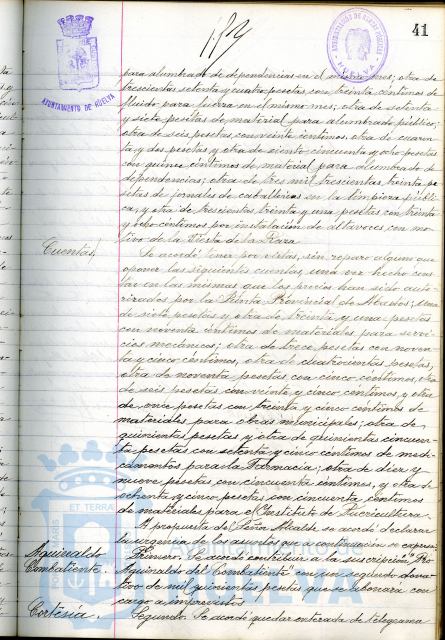 41
AYUNTAMIENTO DE HUELVA
para alumbrado de dependencias en el mismo mes; otra de
trescientas setenta y cuatro pesetas, con treinta céntimos de
fluido para fuerza en el mismo mes; otra de setenta
y siete pesetas de material para alumbrado público;
otra de seis pesetas, con veinte céntimos, otra de cuaren-
ta y dos pesetas y otra de ciento cincuenta y ocho pesetas
con quince céntimos de material para alumbrado de
dependencias; otra de tres mil trescientas treinta pe-
setas de jornales de caballerías en la limpieza públi-
ca, y otra de trescientas treinta y una pesetas con treinta
y ocho céntimos por instalación de altavoces con mo-
tivo de la Fiesta de la Raza.
Cuentas
Se acordó tener por vistas, sin reparo alguno que
oponer las siguientes cuentas, una vez hecho cons-
tar en las mismas que los precios han sido auto-
rizados por la Junta Provincial de Abastos; una
de siete pesetas y otra de treinta y una pesetas
con noventa céntimos de materiales para servi-
cios mecánicos; otra de trece pesetas con noven-
ta y cinco céntimos, otra de cuatrocientas pesetas,
otra de noventa pesetas con cinco céntimos, otra
de seis pesetas con veinte y cinco céntimos y otra
de once pesetas con treinta y cinco céntimos de
materiales para obras municipales; otra de
quinientas pesetas y otra de quinientas cincuen-
ta pesetas con setenta y cinco céntimos de medi-
camentos para la Farmacia; otra de diez y
nueve pesetas con cincuenta céntimos, y otra de
ochenta y cinco pesetas con cincuenta céntimos
de materiales para el Instituto de Puericultura.
A propuesta del Señor Alcalde se acordó declarar
la urgencia de los asuntos que a continuación se expresan:
Aguinaldo
Combatiente.
Primero. Se acordó contribuir a la suscripción "Pro
Aguinaldo del Combatiente" con un segundo dona-
tivo de mil quinientas pesetas que se abonará con
cargo a imprevistos.
Cortesía.
Segundo. Se acordó quedar enterada de telegrama